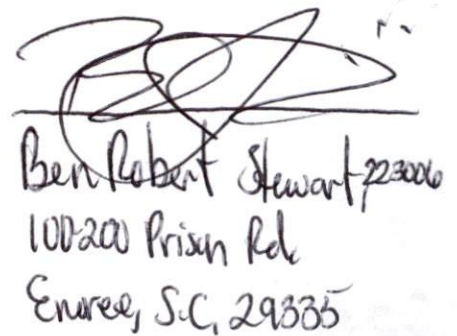 Ben Robert Stewart, 223006
100-200 Prison Rd.
Enoree, S.C. 29335